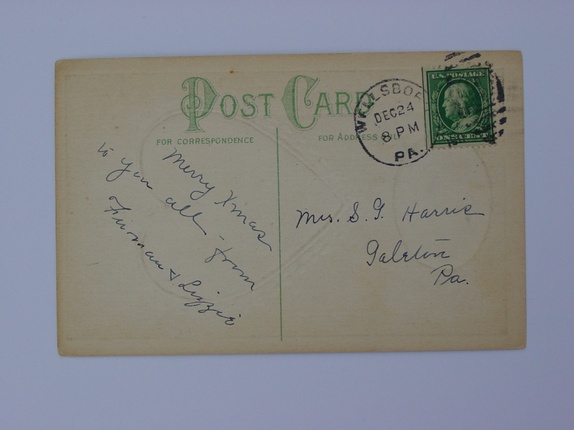 POST CARD
FOR CORRESPONDENCE
FOR ADDRESS
WELLSBORO
DEC 24
8 PM
PA.
U.S. POSTAGE
Merry Xmas
to you all - from
Furman & Lizzie
Mrs. S. G. Harris
Galeton
Pa.